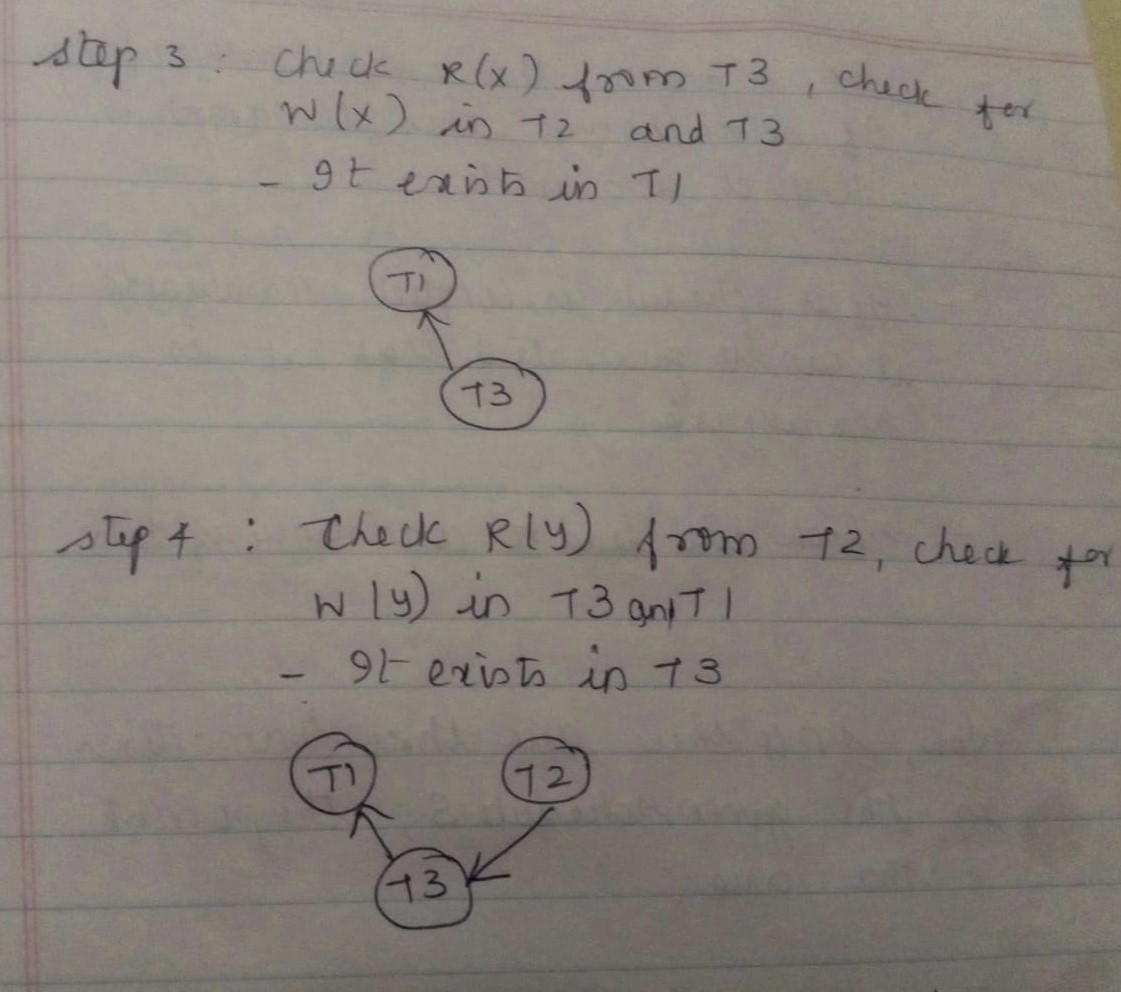 step 3 : Check R(X) from T3 , check for
W(X) in T2 and T3
- It exists in T1
T1
T3
step 4 : Check R(y) from T2, check for
W(y) in T3 and T1
- It exists in T3
T1 T2
T3